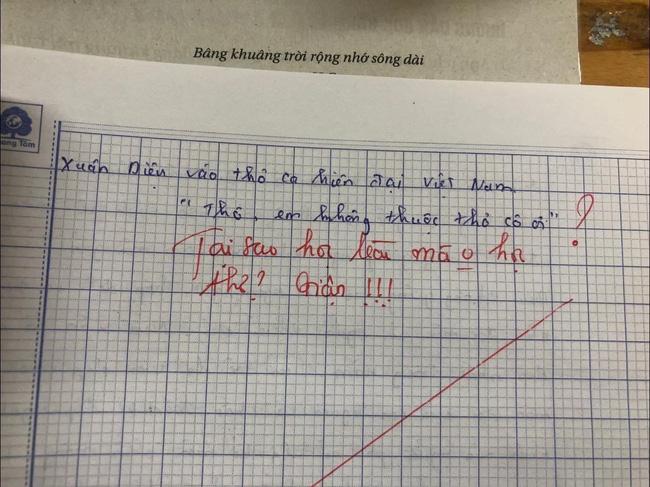 Bâng khuâng trời rộng nhớ sông dài
ang Tâm
Xuân Diệu vào thơ ca hiện đại Việt Nam
"Thôi, em không thuộc thơ cô ơi" ?
Tại sao học lâu mà o học
thế? Giận !!!